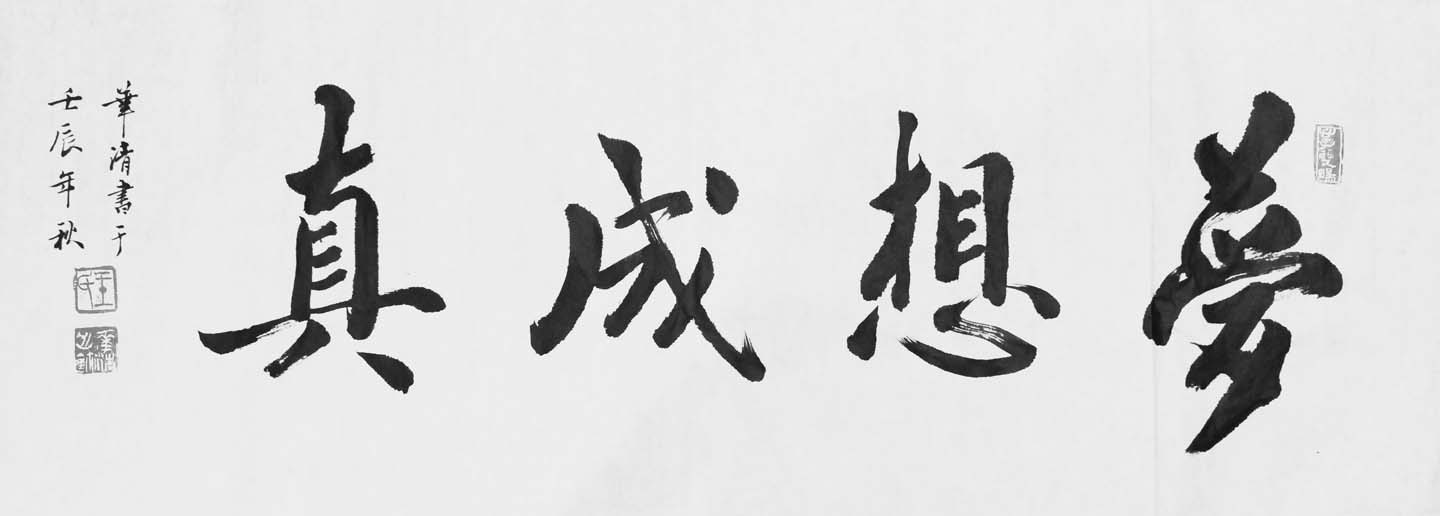 夢想成真
華清書于
壬辰年秋